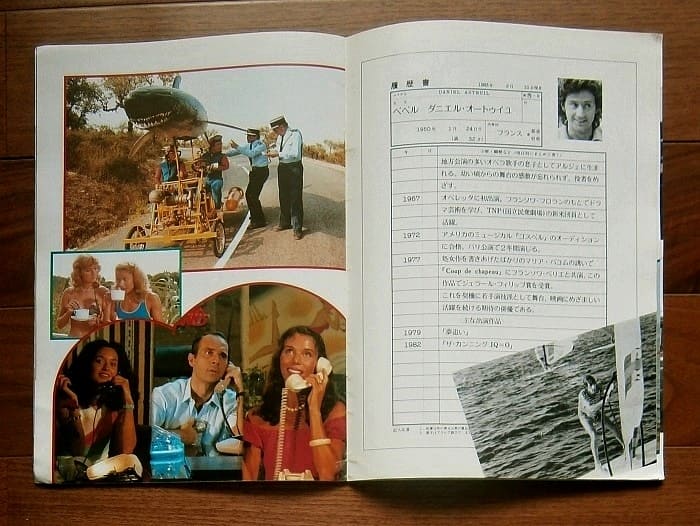 履歴書
DANIEL AUTEUIL
ベベル ダニエル・オートゥイユ
フランス
地方公演の多いオペラ歌手の息子としてアルジェに生ま
れる。幼い頃からの舞台の感激が忘れられず、役者をめ
ざす。
1967 オペレッタに初出演。フランソワ・フロランのもとでドラ
マ芸術を学び、TNP(国立民衆劇場)の新米団員として
活躍。
1972 アメリカのミュージカル「ゴスペル」のオーディション
に合格。パリ公演で2年間演じる。
1977 処女作を書きあげたばかりのマリア・パコムの誘いで
「Coup de chapeau」にフランソワ・ペリエと共演。この
作品でジェラール・フィリップ賞を受賞。
これを契機に若手演技派として舞台、映画にめざましい
活躍を続ける期待の俳優である。
主な出演作品
1979 「夢追い」
1982 「ザ・カンニング IQ=0」